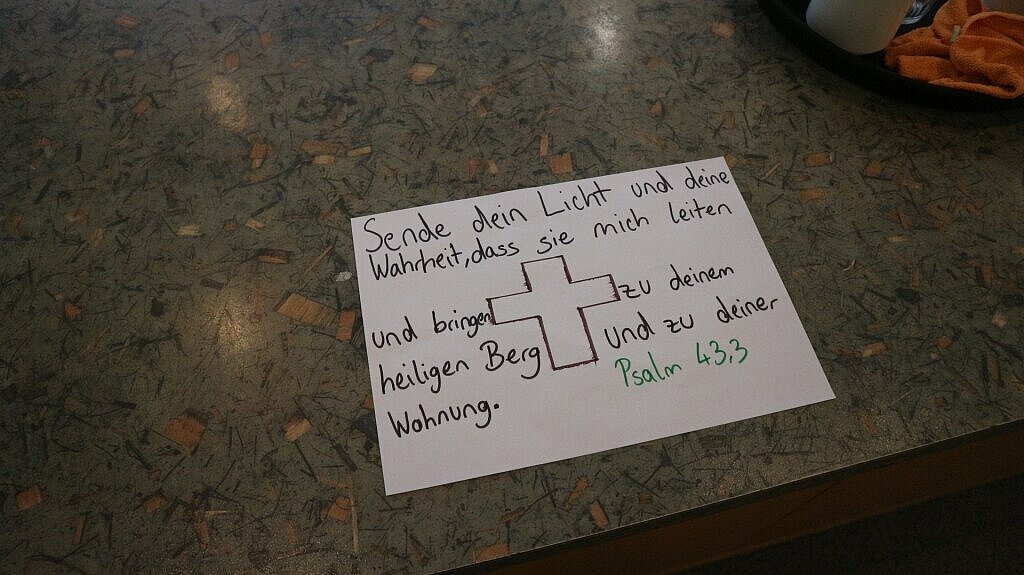 Sende dein Licht und deine
Wahrheit, dass sie mich leiten
und bringen zu deinem
heiligen Berg und zu deiner
Wohnung.
Psalm 43,3